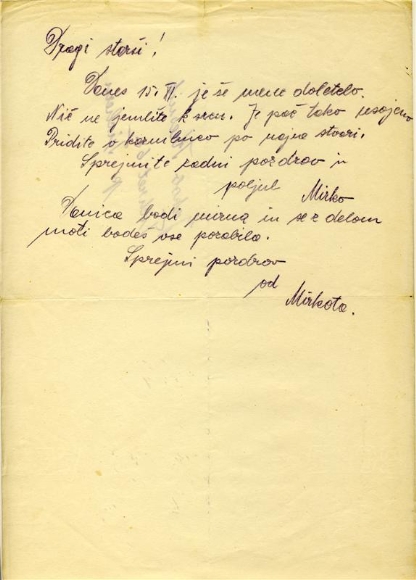 Dragi starši!
Danes 15. II. je še mene doletelo.
Nič ne jemljite k srcu. Je pač tako usojeno
Pridite v kaznilnico po najne stvari.
Sprejmite zadni pozdrav in
poljub Mirko
Danica bodi mirna in se z delom
moti bodeš vse pozabila.
Sprejmi pozdrav
od
Mirkota.